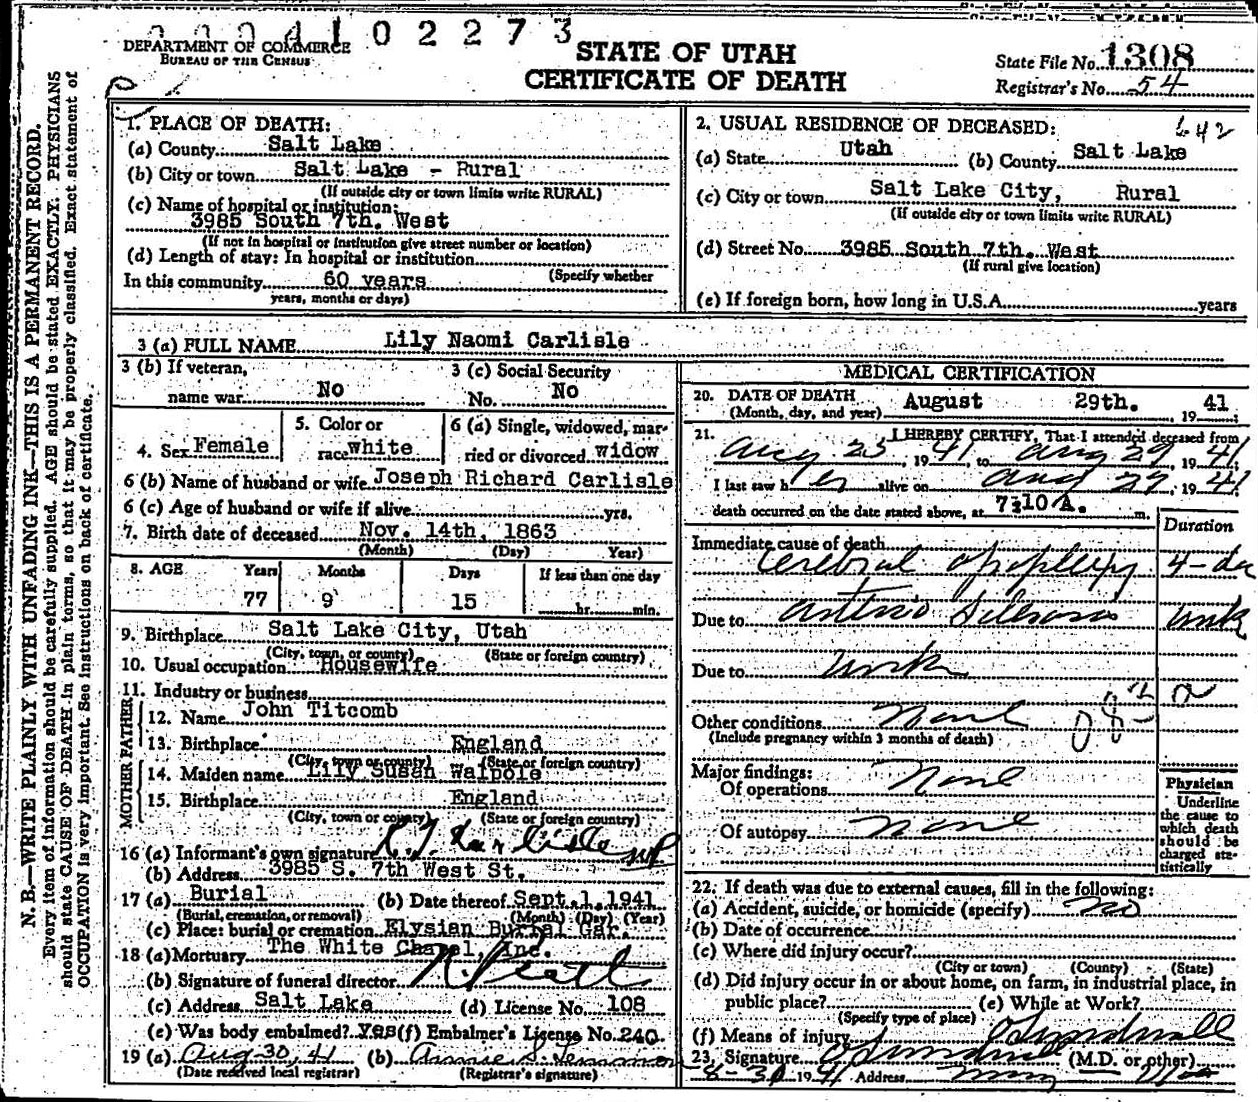 0 0 0 4 1 0 2 2 7 3
DEPARTMENT OF COMMERCE
BUREAU OF THE CENSUS
STATE OF UTAH
CERTIFICATE OF DEATH
State File No. 1308
Registrar's No. 54
N. B.—WRITE PLAINLY WITH UNFADING INK—THIS IS A PERMANENT RECORD.
Every item of information should be carefully supplied. AGE should be stated EXACTLY. PHYSICIANS
should state CAUSE OF DEATH in plain terms, so that it may be properly classified. Exact statement of
OCCUPATION is very important. See instructions on back of certificate.
1. PLACE OF DEATH:
(a) County Salt Lake
(b) City or town Salt Lake - Rural
(If outside city or town limits write RURAL)
(c) Name of hospital or institution:
3985 South 7th. West
(If not in hospital or institution give street number or location)
(d) Length of stay: In hospital or institution
(Specify whether
In this community 60 years
years, months or days)
2. USUAL RESIDENCE OF DECEASED: 642
(a) State Utah (b) County Salt Lake
(c) City or town Salt Lake City, Rural
(If outside city or town limits write RURAL)
(d) Street No. 3985 South 7th. West
(If rural give location)
(e) If foreign born, how long in U.S.A. years
3 (a) FULL NAME Lily Naomi Carlisle
3 (b) If veteran, name war No
3 (c) Social Security No. No
4. Sex Female
5. Color or race white
6 (a) Single, widowed, married or divorced widow
6 (b) Name of husband or wife Joseph Richard Carlisle
6 (c) Age of husband or wife if alive yrs.
7. Birth date of deceased Nov. 14th, 1863
(Month) (Day) Year)
8. AGE Years Months Days If less than one day
77 9 15 hr. min.
9. Birthplace Salt Lake City, Utah
(City, town, or county) (State or foreign country)
10. Usual occupation Housewife
11. Industry or business
FATHER
12. Name John Titcomb
13. Birthplace England
(City, town or county) (State or foreign country)
MOTHER
14. Maiden name Lily Susan Walpole
15. Birthplace England
(City, town or county) (State or foreign country)
16 (a) Informant's own signature
(b) Address 3985 S. 7th West St.
17 (a) Burial (b) Date thereof Sept. 1, 1941
(Burial, cremation, or removal) (Month) (Day) (Year)
(c) Place: burial or cremation Elysian Burial Gar.
18 (a) Mortuary The White Chapel, Inc.
(b) Signature of funeral director
(c) Address Salt Lake (d) License No. 108
(e) Was body embalmed? Yes (f) Embalmer's License No. 240
19 (a) Aug 30, 41 (b)
(Date received local registrar) (Registrar's signature)
MEDICAL CERTIFICATION
20. DATE OF DEATH
(Month, day, and year) August 29th. , 19 41
21. I HEREBY CERTIFY, That I attended deceased from
Aug. 25, 19 41, to Aug 29, 19 41
I last saw her alive on Aug 29, 19 41
death occurred on the date stated above, at 7:10 A. m.
Duration
Immediate cause of death
Cerebral apoplexy 4-da
Due to Arterio Sclerosis unk
Due to unk
Other conditions None
(Include pregnancy within 3 months of death)
Major findings:
Of operations None
Of autopsy None
Physician
Underline
the cause to
which death
should be
charged sta-
tistically
22. If death was due to external causes, fill in the following:
(a) Accident, suicide, or homicide (specify) no
(b) Date of occurrence
(c) Where did injury occur?
(City or town) (County) (State)
(d) Did injury occur in or about home, on farm, in industrial place, in
public place? (e) While at Work?
(Specify type of place)
(f) Means of injury
23. Signature (M.D. or other)
8-30 19 41 Address